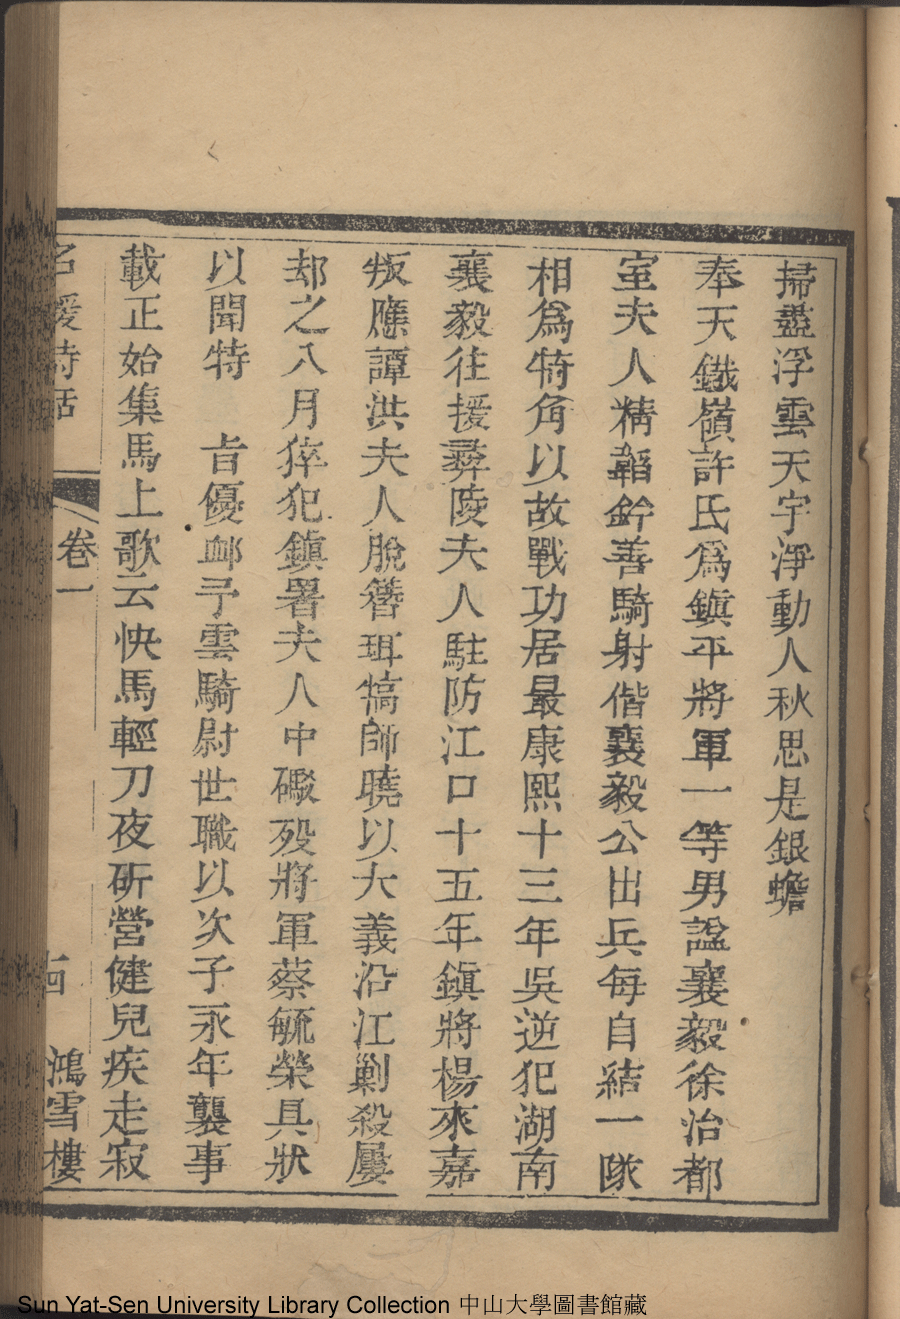 掃盡浮雲天宇淨動人秋思是銀蟾
奉天鐵嶺許氏爲鎮平將軍一等男諡襄毅徐治都
室夫人精韜鈐善騎射偕襄毅公出兵每自結一隊
相爲犄角以故戰功居最康熙十三年吳逆犯湖南
襄毅往援彝陵夫人駐防江口十五年鎮將楊來嘉
叛應譚洪夫人脫簪珥犒師曉以大義沿江剿殺屢
却之八月猝犯鎮署夫人中礮歿將軍蔡毓榮具狀
以聞特 旨優卹予雲騎尉世職以次子永年襲事
載正始集馬上歌云快馬輕刀夜斫營健兒疾走寂
名媛詩話 卷一 鴻雪樓
Sun Yat-Sen University Library Collection 中山大學圖書館藏